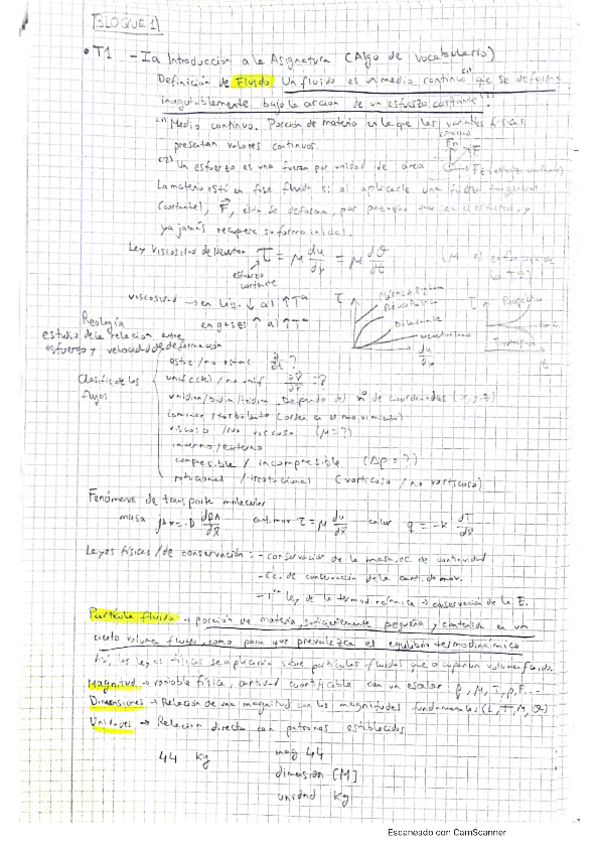 BLOQUE 1
• T1 - Ia Introducción a la Asignatura (Algo de vocabulario)
Definición de Fluido Un fluido es un medio continuo (1) que se deforma
inagotablemente bajo la acción de un esfuerzo cortante (2).
(1) Medio continuo. Porción de materia en la que las variables físicas
presentan valores continuos.
(2) Un esfuerzo es una fuerza por unidad de área
Fn F
Ft (esfuerzo cortante)
La materia está en fase fluida si al aplicarle una fuerza tangencial
(cortante), F, ésta se deforma, por pequeño que sea el esfuerzo, y
ya jamás recupere su forma inicial.
Ley Viscosidad de Newton τ = μ du/dy = μ dθ/dt
esfuerzo
cortante
viscosidad → en líq. ↓ al ↑ Tª
en gases ↑ al ↑ Tª
τ
Dilatante
du/dy
τ
t
Reología
estudio de la relación entre
esfuerzo y velocidad de deformación
Clasific. de los
flujos
estac / no estac ∂/∂t = ?
unif / no unif. = ?
unidim/bidim/tridim Depende del nº de coordenadas (x, y, z)
laminar / turbulento (orden en el movimiento)
viscoso / no viscoso (μ = ?)
interno/externo
compresible / incompresible (Δρ = ?)
rotacional / irrotacional (vorticoso / no vorticoso)
Fenómenos de transporte molecular
masa cant. mov τ = μ du/dx calor q = -k dT/dx
Leyes físicas / de conservación: - conservación de la masa, ec. de continuidad
- Ec. de conservación de la cant. de mov.
- 1ª ley de la termodinámica → conservación de la E.
Partícula fluida → porción de materia, suficientemente pequeña y contenida en un
cierto volumen fluido, como para que prevalezca el equilibrio termodinámico
Así, las leyes físicas se aplicarán sobre partículas fluidas que ocupan un volumen fluido.
Magnitud → variable física, cantidad cuantificable con un escalar
Dimensiones → Relación de una magnitud con las magnitudes fundamentales (L, T, M, θ)
Unidades → Relación directa con patrones establecidos
44 Kg
mag 44
dimensión [M]
unidad Kg
Escaneado con CamScanner